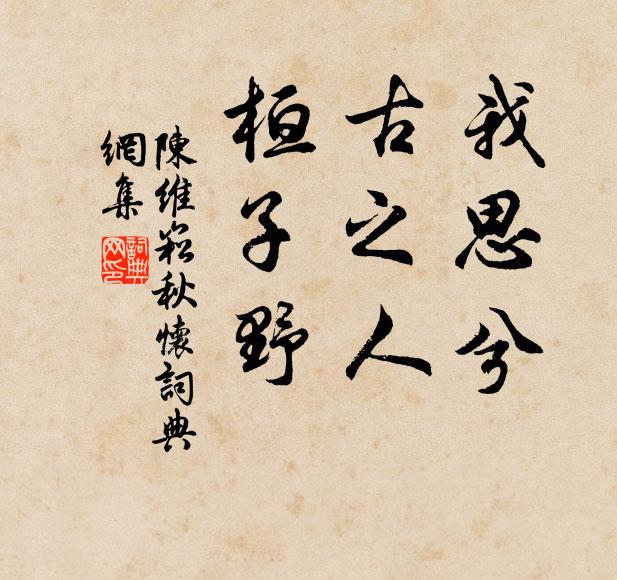 我思兮
古之人
桓子野
陳維崧秋懷詞典
網集
詞典
网印